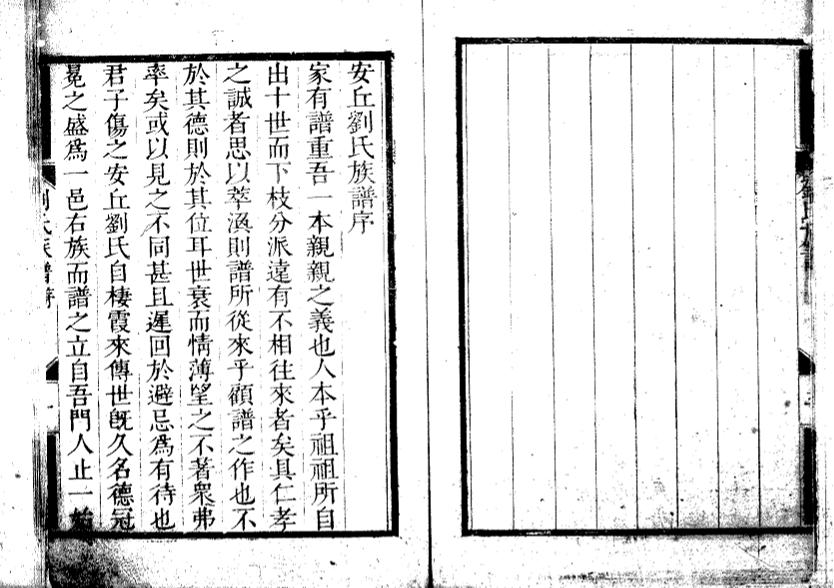 安丘劉氏族譜序
家有譜重吾一本親親之義也人本乎祖祖所自
出十世而下枝分派遠有不相往來者矣具仁孝
之誠者思以萃渙則譜所從來乎顧譜之作也不
於其德則於其位耳世衰而情薄望之不著衆弗
率矣或以見之不同甚且遲回於避忌為有待也
君子傷之安丘劉氏自棲霞來傳世旣久名德冠
冕之盛為一邑右族而譜之立自吾門人止一始
劉氏族譜序
一